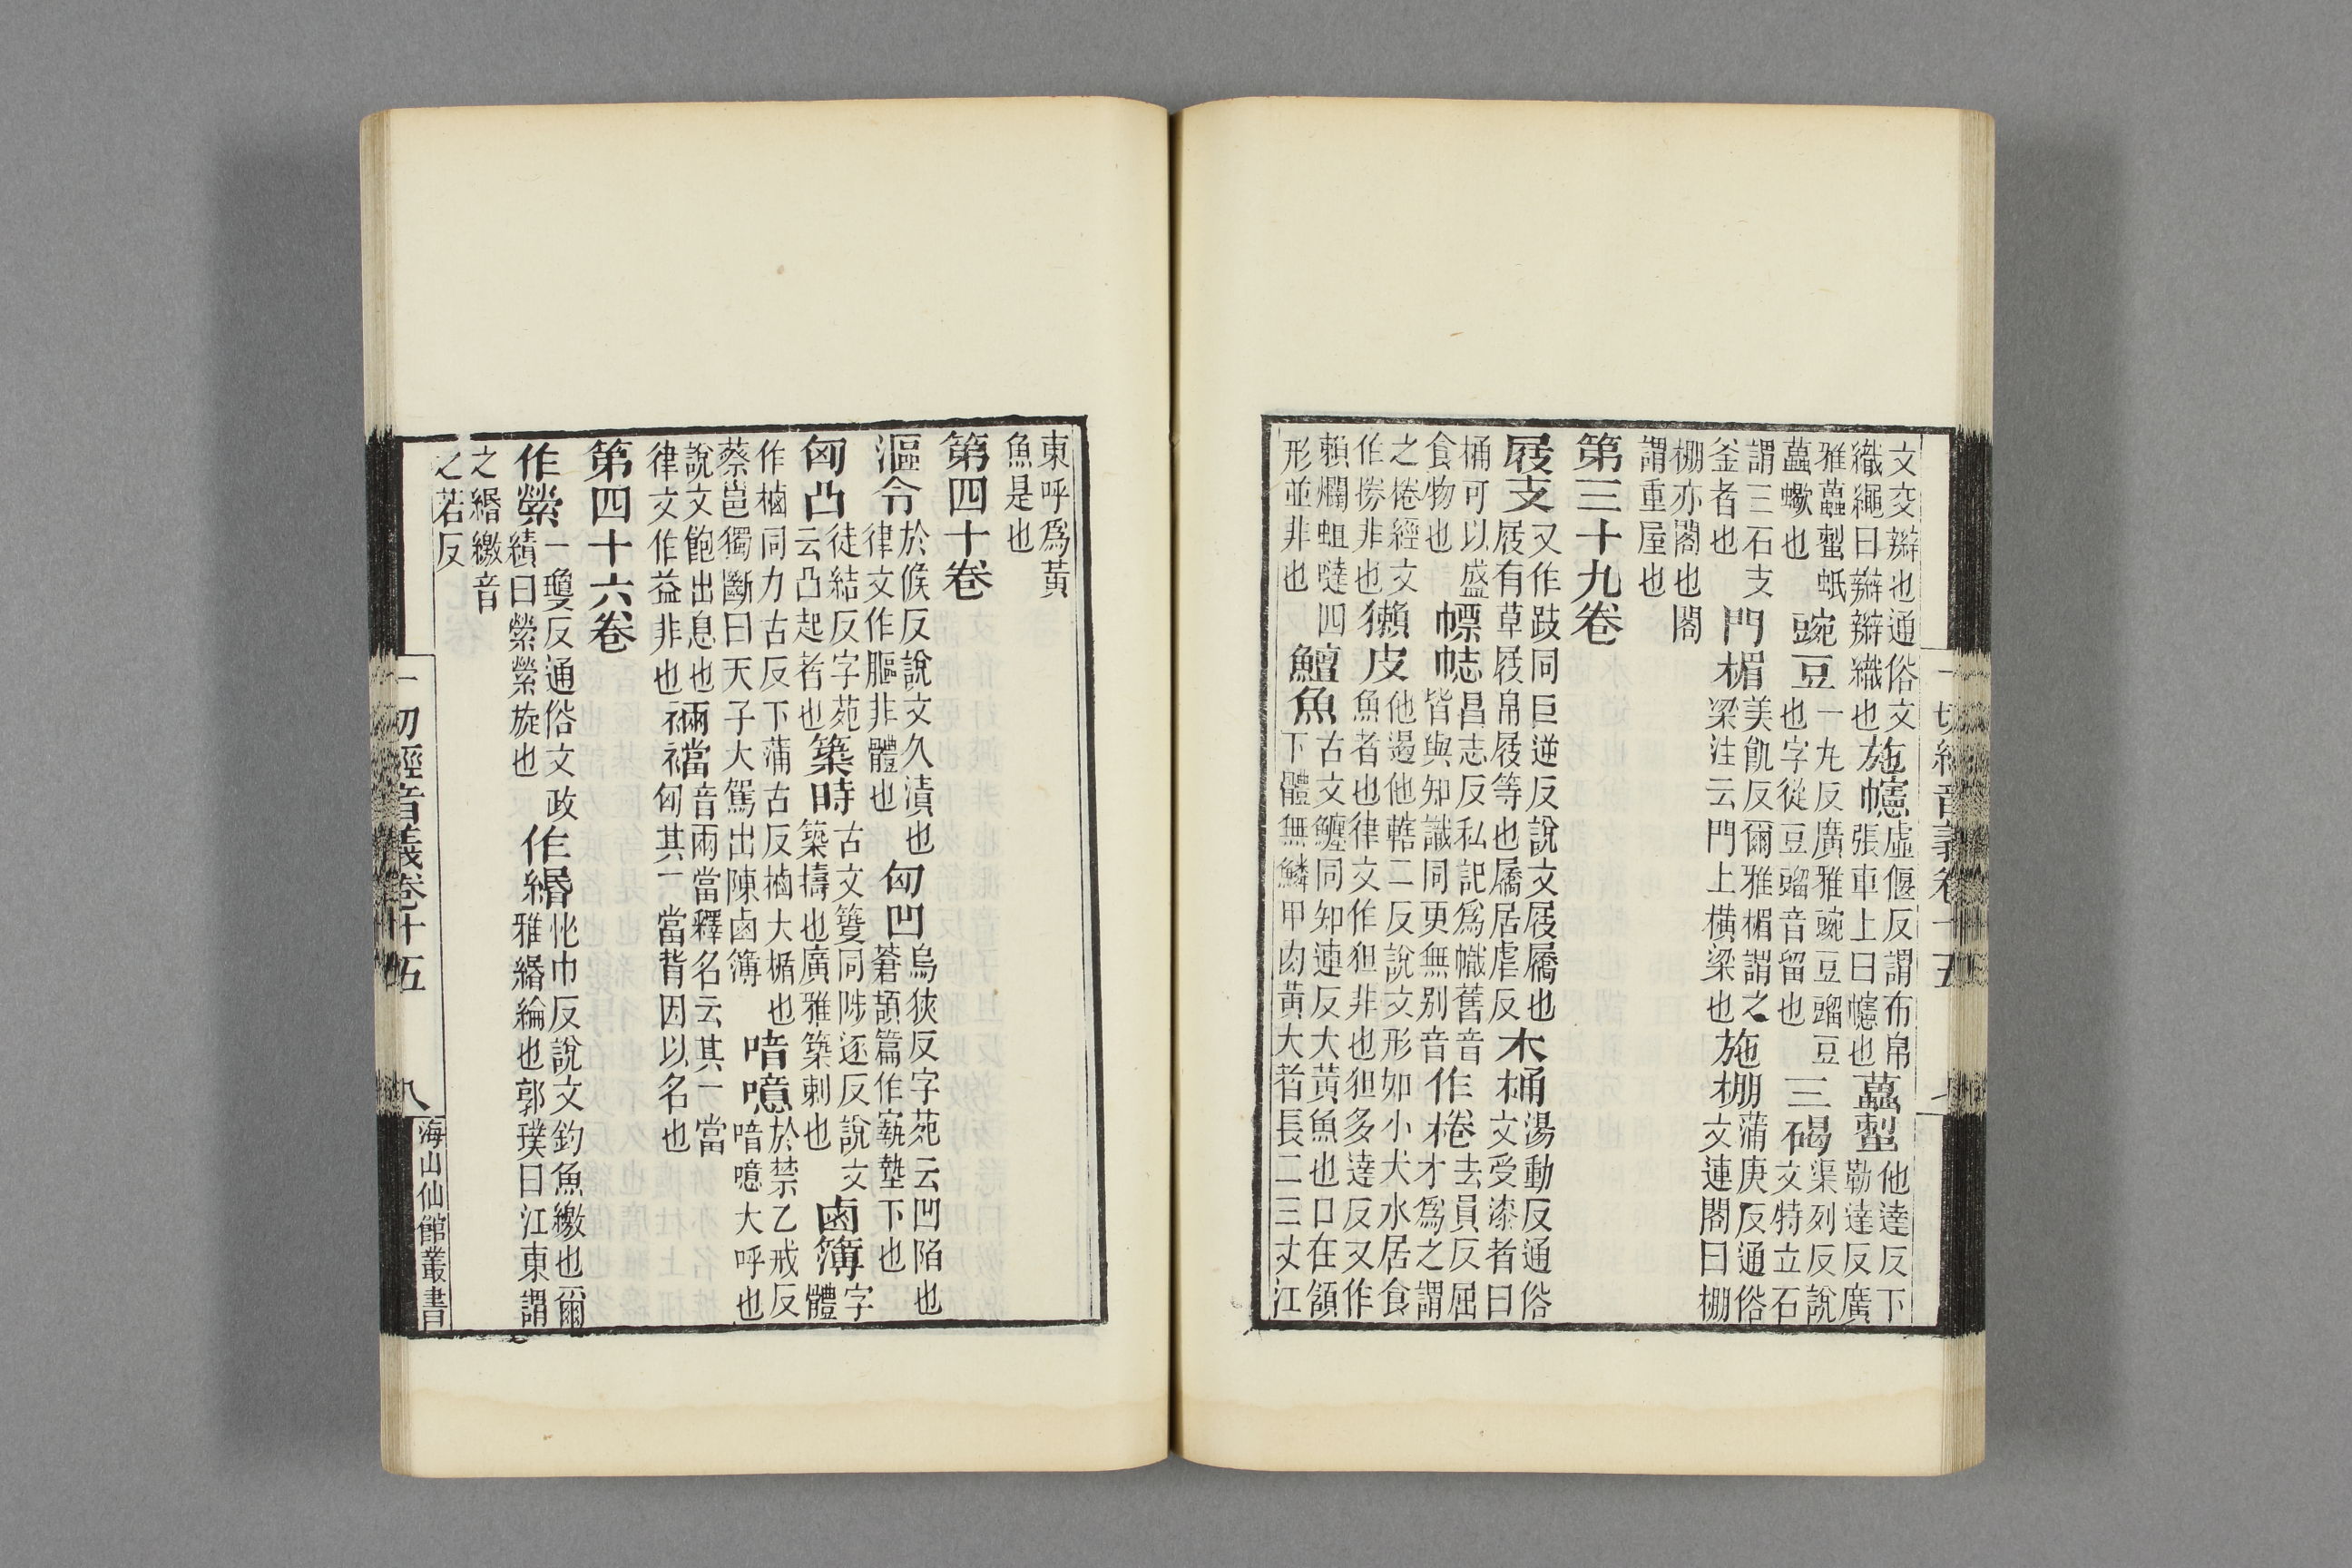 文交辮也通俗文織繩曰辮辮織也施幰虛偃反謂布帛張車上曰幰也蠆蠚他達反下勒達反廣
雅蠆蠚蚔蠆蠍也豌豆一九反廣雅豌豆䝁豆也字從豆䝁音留也三碣渠列反說文特立石
謂三石支釜者也門楣美飢反爾雅楣謂之梁注云門上橫梁也施棚蒲庚反通俗文連閣曰棚
棚亦閣也閣謂重屋也
第三十九卷
屐支又作跂同巨逆反說文屐屩也屐有草屐帛屐等也屩居虐反木桶湯動反通俗文受漆者曰
桶可以盛食物也幖幟昌志反私記爲幟舊音皆與知識同更無別音作棬去員反屈才爲之謂
之棬經文作㭿非也獺皮他遏他轄二反說文形如小犬水居食魚者也律文作狚非也狚多達反又作
賴爛蛆噠四形並非也鱣魚古文鱣同知連反大黃魚也口在頷下體無鱗甲肉黃大者長二三丈江
一切經音義卷十五
七
東呼爲黃魚是也
第四十卷
漚令於候反說文久漬也律文作膒非體也凹凹烏狹反字苑云凹陷也蒼頡篇作㝪墊下也
凹凸徒結反字苑云凸起者也築時古文𥴦同陟逐反說文築擣也廣雅築刺也鹵簿字體
作樐同力古反下蒲古反樐大楯也蔡邕獨斷曰天子大駕出陳鹵簿喑噫於禁乙戒反喑噫大呼也
說文飽出息也律文作益非也裲襠音兩當釋名云其一當匈其一當背因以名也
第四十六卷
作縈一瓊反通俗文政績曰縈縈旋也作緡忙巾反說文釣魚繳也爾雅緡綸也郭璞曰江東謂
之緡繳音之若反
一切經音義卷十五
八
海山仙館叢書